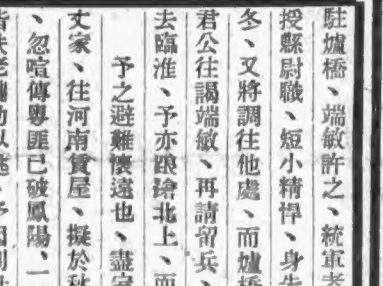 駐爐橋、端敏許之、統軍者
授縣尉職、短小精悍、身先
冬、又將調往他處、而爐橋
君公往謁端敏、再請留兵、
去臨淮、予亦踉蹌北上、而
予之避難懷遠也、盡室
丈家、往河南賃屋、擬於秋
、忽喧傳粵匪已破鳳陽、一